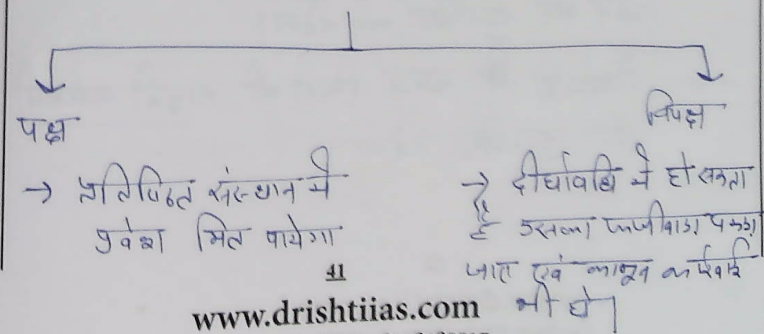 पक्ष
→ प्रतिष्ठित संस्थान में
प्रवेश मिल पायेगा
विपक्ष
→ दीर्घावधि में हो सकता
है उसका फर्जीवाड़ा पकड़ा
जाए एवं कानून कार्रवाई
भी हो।
41
www.drishtiias.com